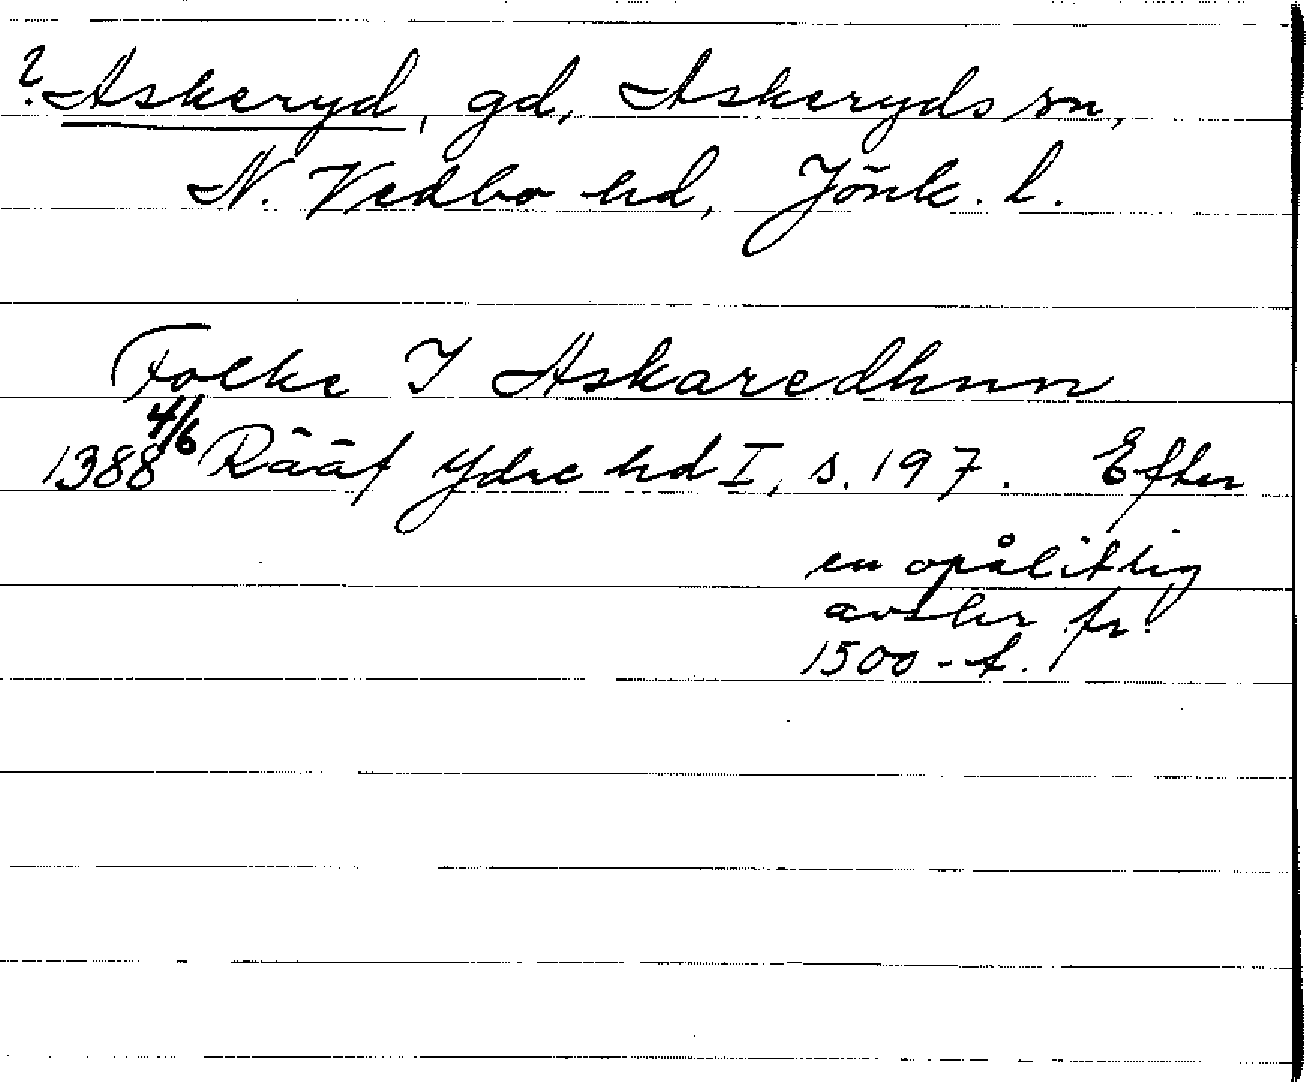 ? Askeryd, gd, Askeryds sn,
N. Vedbo hd, Jönk. l.
Folke I Askaredhum
1388 4/6 Rääf Ydre hd I, s. 197. Efter
en opålitlig
avskr fr.
1500-t.